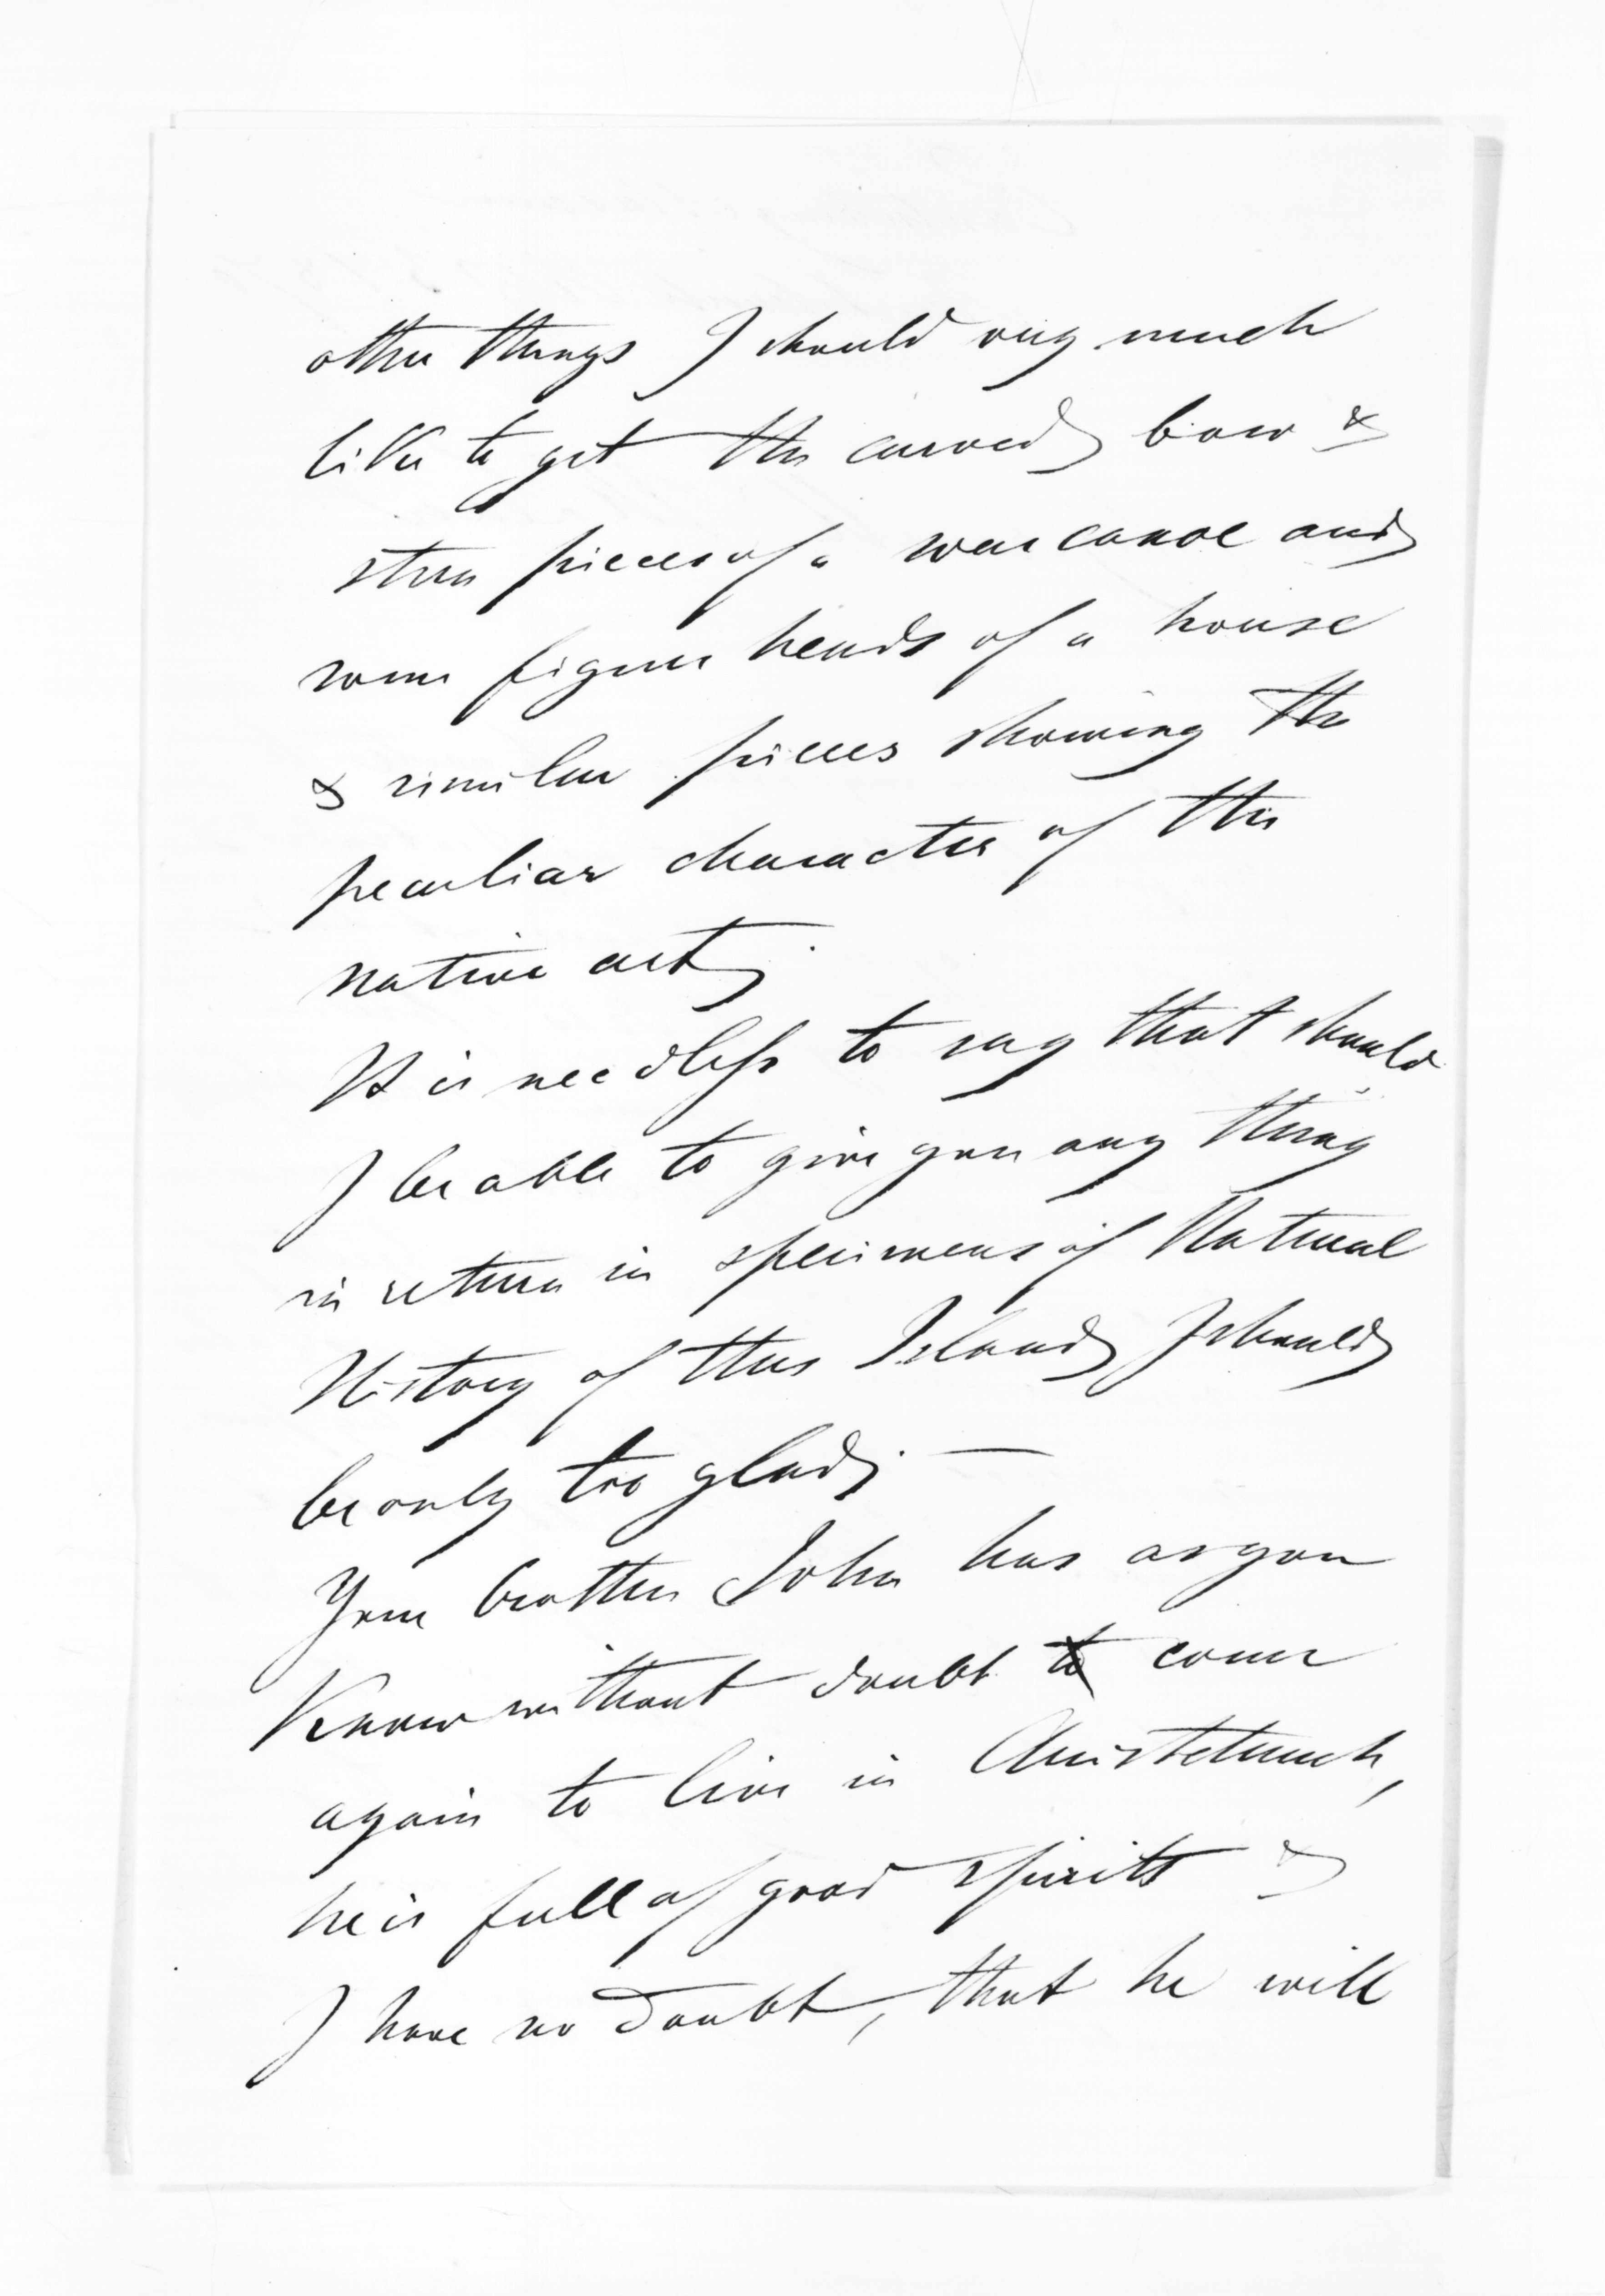 other things I should very much
like to get the carved bow &
stern pieces of a war canoe and
some figure heads of a house
& similar pieces showing the
peculiar character of this
native art;
It is needless to say that should
I be able to give you any thing
in return in specimens of Natural
History of this Island I should
be only too glad; —
Your brother John has as you
Know without doubt to come
again to live in Christchurch,
he is full of good spirits &
I have no doubt, that he will